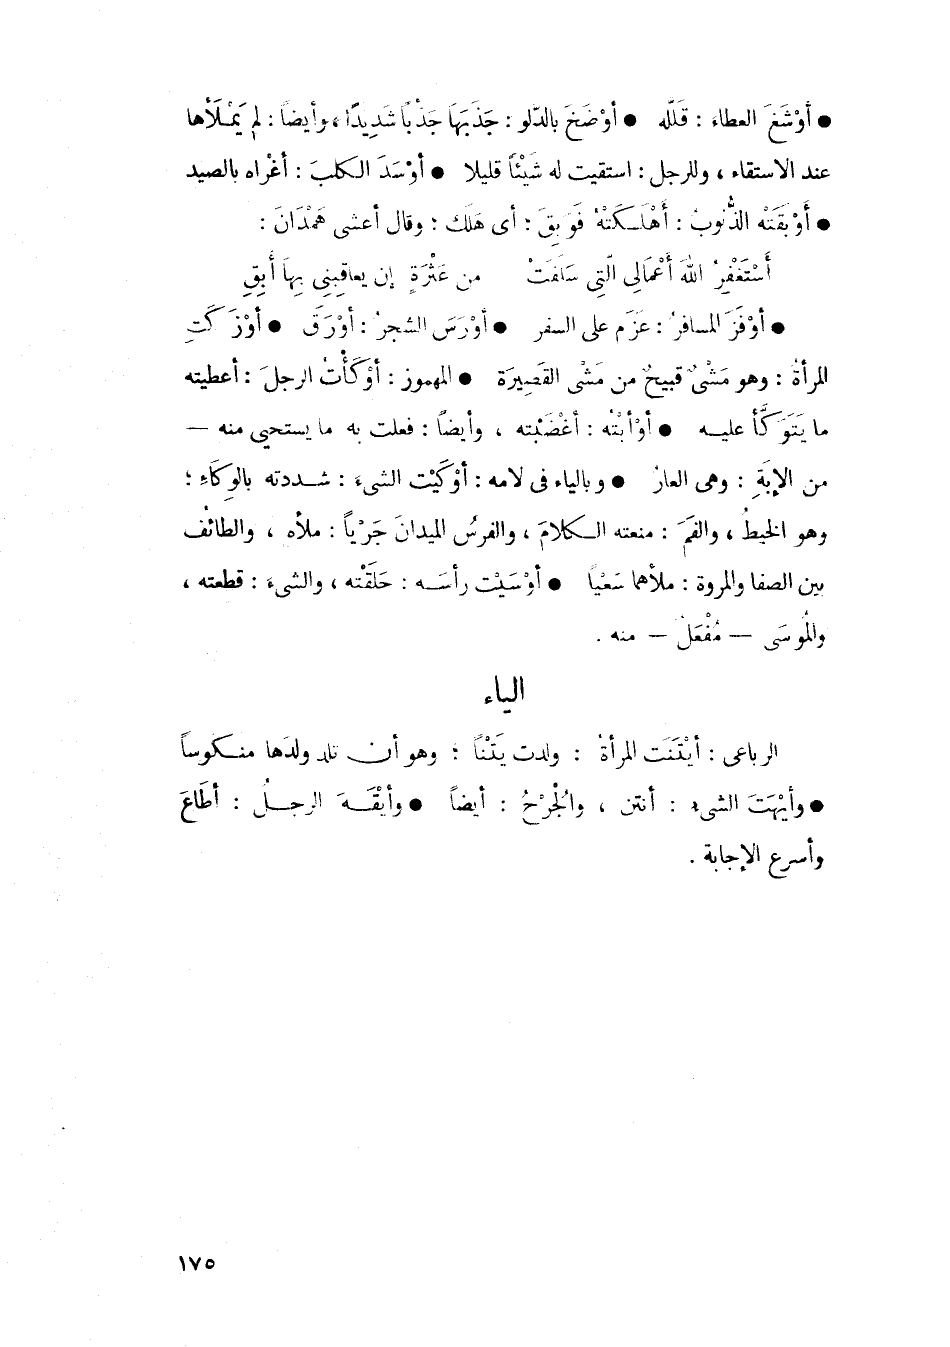 ● أَوْشَغَ العطاء : قَلَّله ● أوْضَخَ بالدَّلو : جَذَبَهَا جَذْباً شَدِيدًا ، وأيضاً : لم يَمْلَأْها
عند الاستقاء ، وللرجل : استقيت له شَيْئاً قليلا ● أوْسَدَ الكلبَ : أغْراه بالصيد
● أَوْبَقَتْه الذُّنوبُ : أَهْلَكَتْهُ فَوَبِقَ : أى هَلَك ؛ وقال أعشى هَمْدَانَ :
أَسْتَغْفِرُ اللهَ أَعْمَالِى الَّتِى سَلَفَتْ من عَثْرَةٍ إن يعاقِبْنِى بِهَا أَبِقِ
● أوْفَزَ المسافرُ : عَزَم على السفر ● أوْرَسَ الشجرُ : أوْرَقَ ● أوْزَكَتِ
المرأةُ : وهو مَشْىٌ قبيحٌ من مَشْى القَصِيرَة ● المهموز : أوْكَأْتُ الرجلَ : أعطيته
ما يَتَوَكَّأ عليه ● أوْأبْتُه : أغْضَبْته ، وأيضاً : فعلت به ما يستحيى منه —
من الإبَةِ : وهى العارُ ● وبالياء فى لامه : أوْكَيْت الشىءَ : شددته بالوِكَاءِ ؛
وهو الخيطُ ، والفَمَ : منعته الكلامَ ، والفرسُ الميدانَ جَرْياً : ملأه ، والطائف
بين الصفا والمروة : ملأهما سَعْياً ● أوْسَيْت رأسَه : حَلَقْته ، والشىءَ : قطعته ،
والُموسَى — مُفْعَلٌ — منه .
الياء
الرباعى : أيْتَنَت المرأةُ : ولدت يَتْناً ؛ وهو أن تلد ولدَها منكوساً
● وأيْهَتَ الشىء : أنتن ، والُجْرحُ : أيضاً ● وأيْقَهَ الرجلُ : أطَاعَ
وأسرع الإجابة .
١٧٥